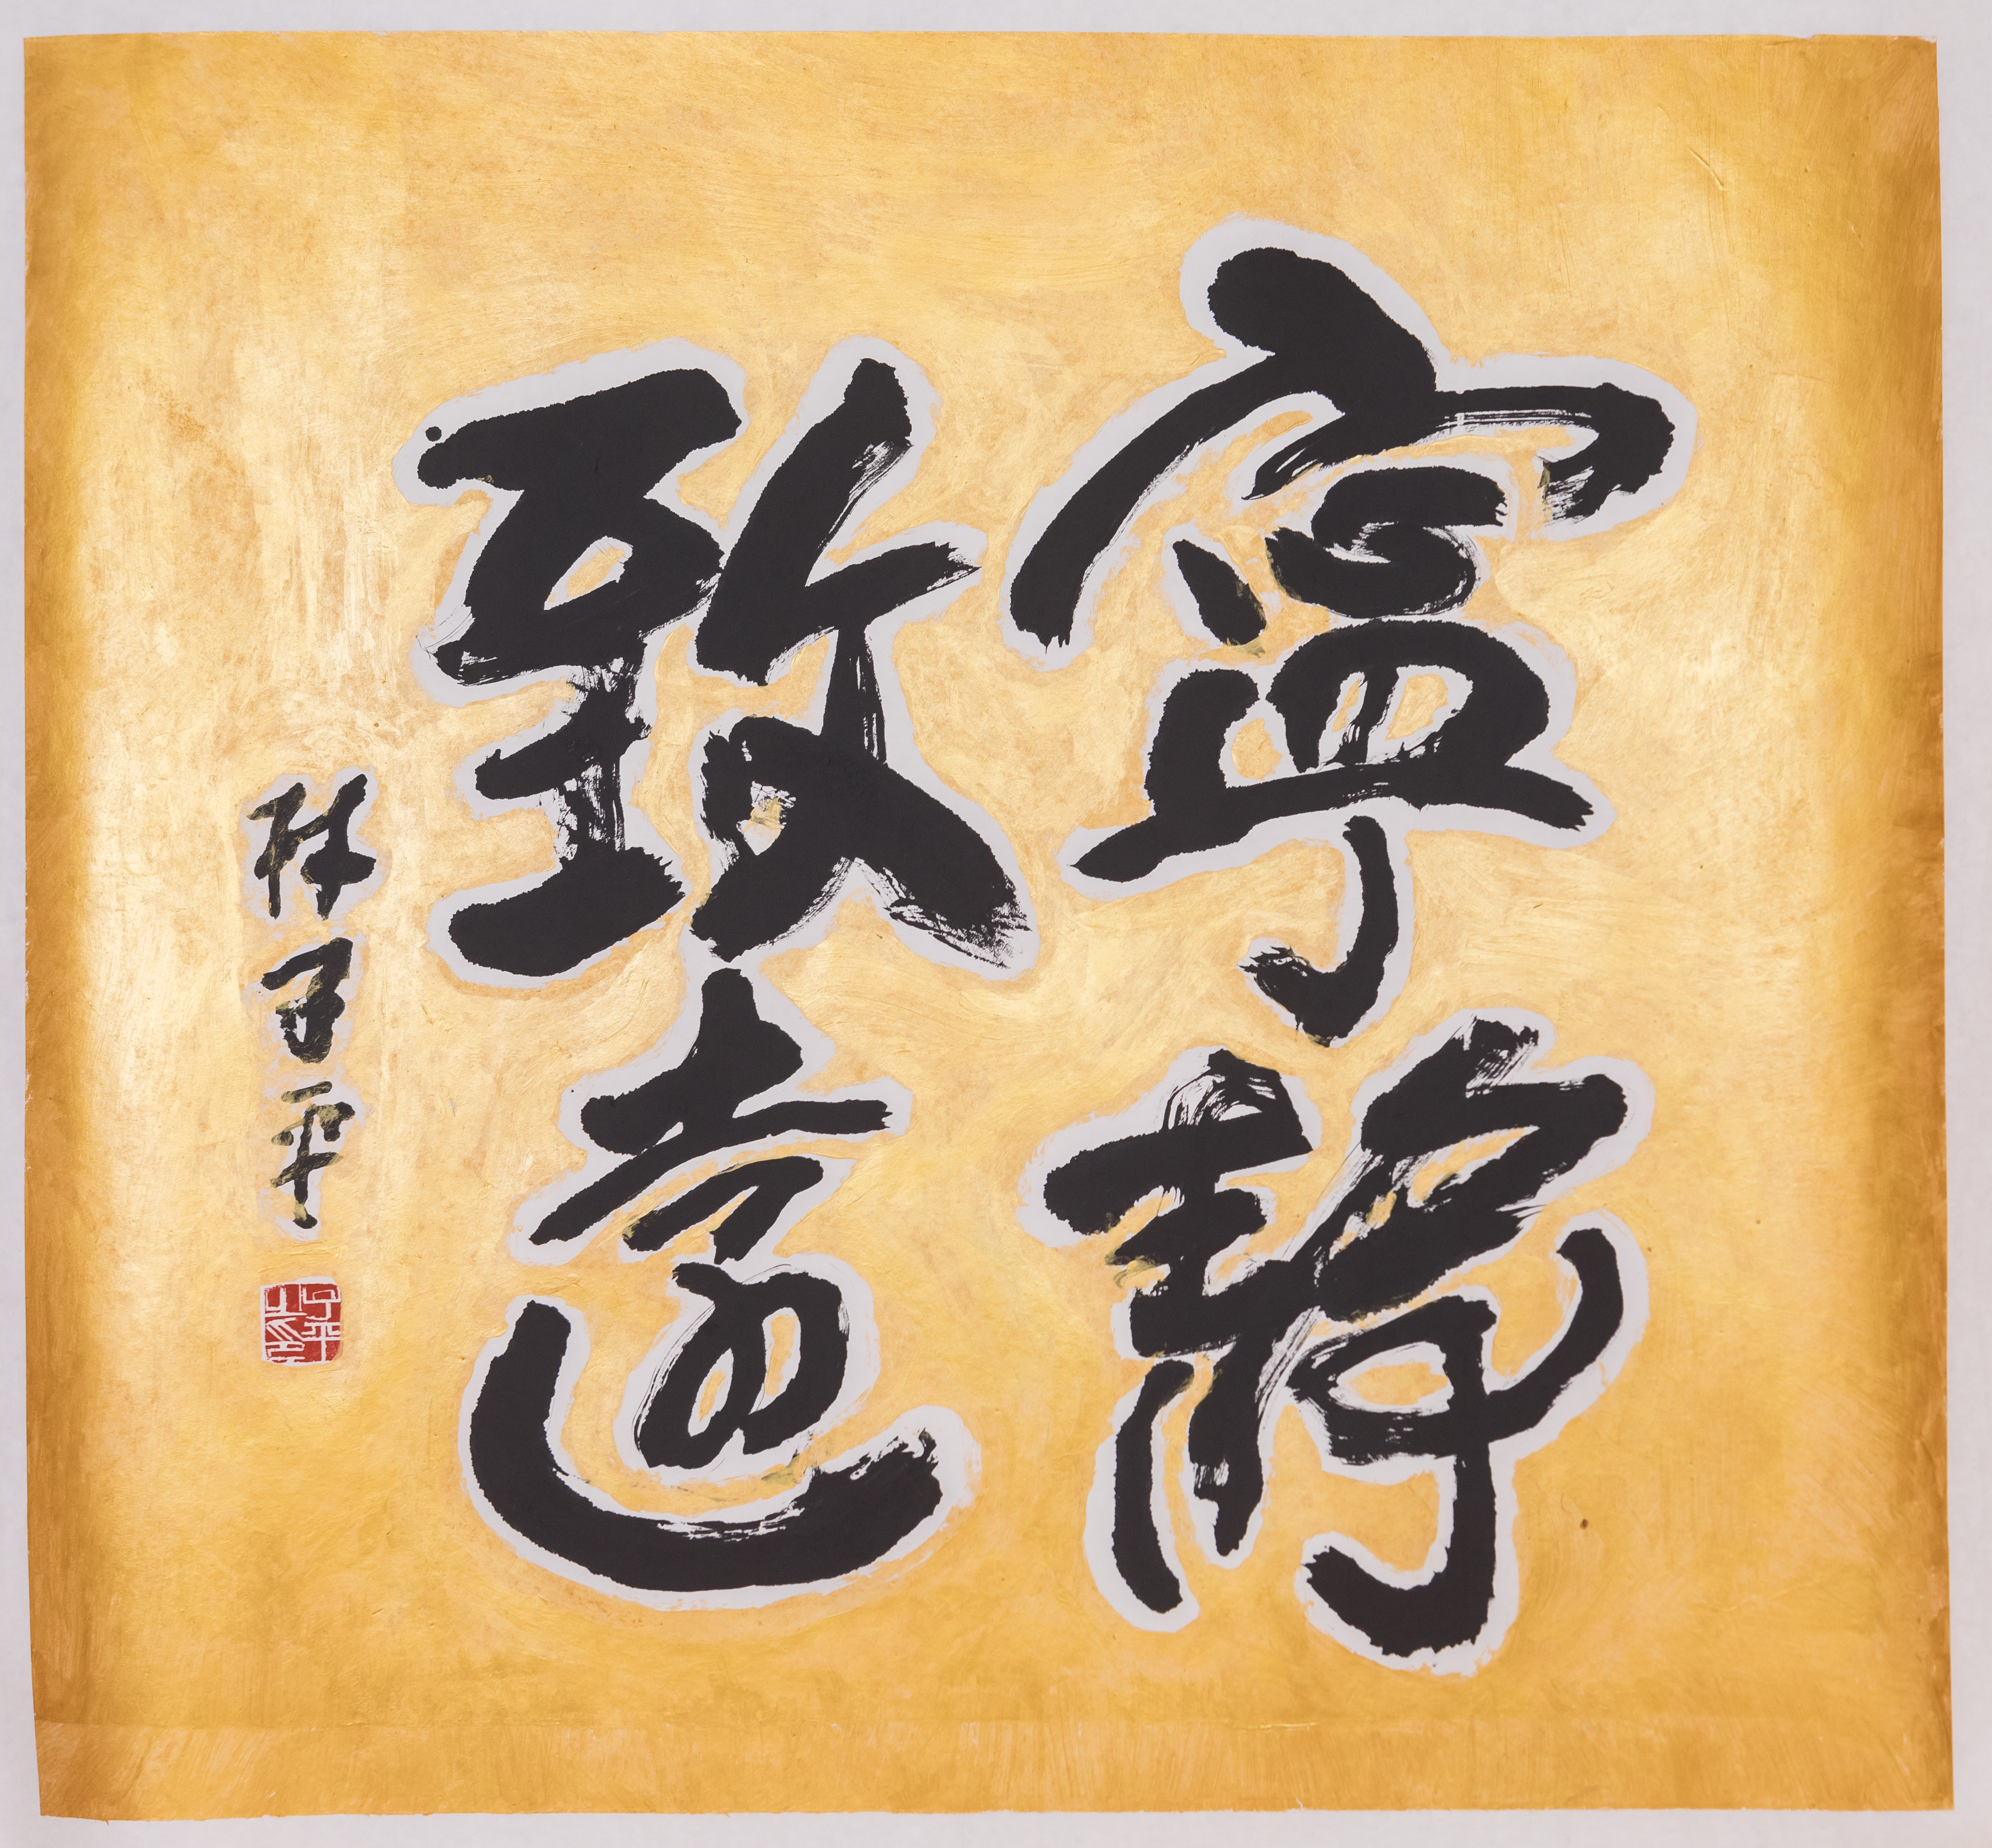 寧靜
致遠
林子平